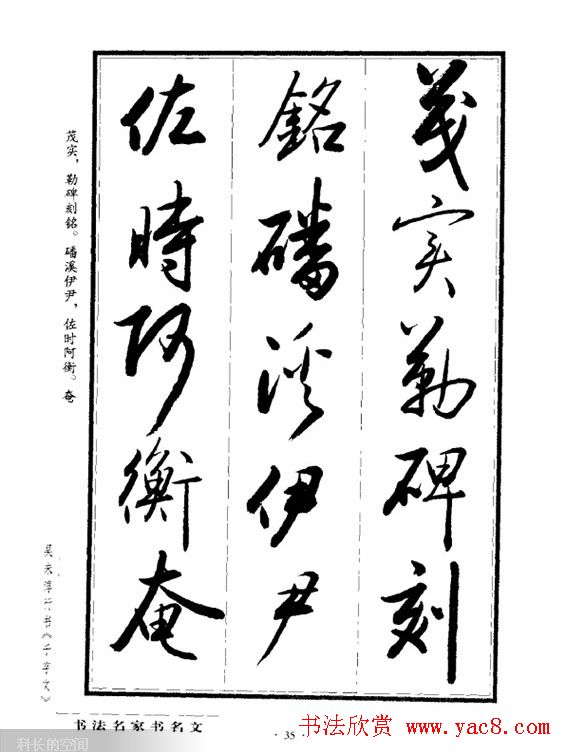 茂实勒碑刻
銘磻溪伊尹
佐時阿衡奄
茂实，勒碑刻銘。磻溪伊尹，佐时阿衡。奄
吴未淳行书《千字文》
书法名家书名文
·35
书法欣赏 www.yac8.com
科长的空间